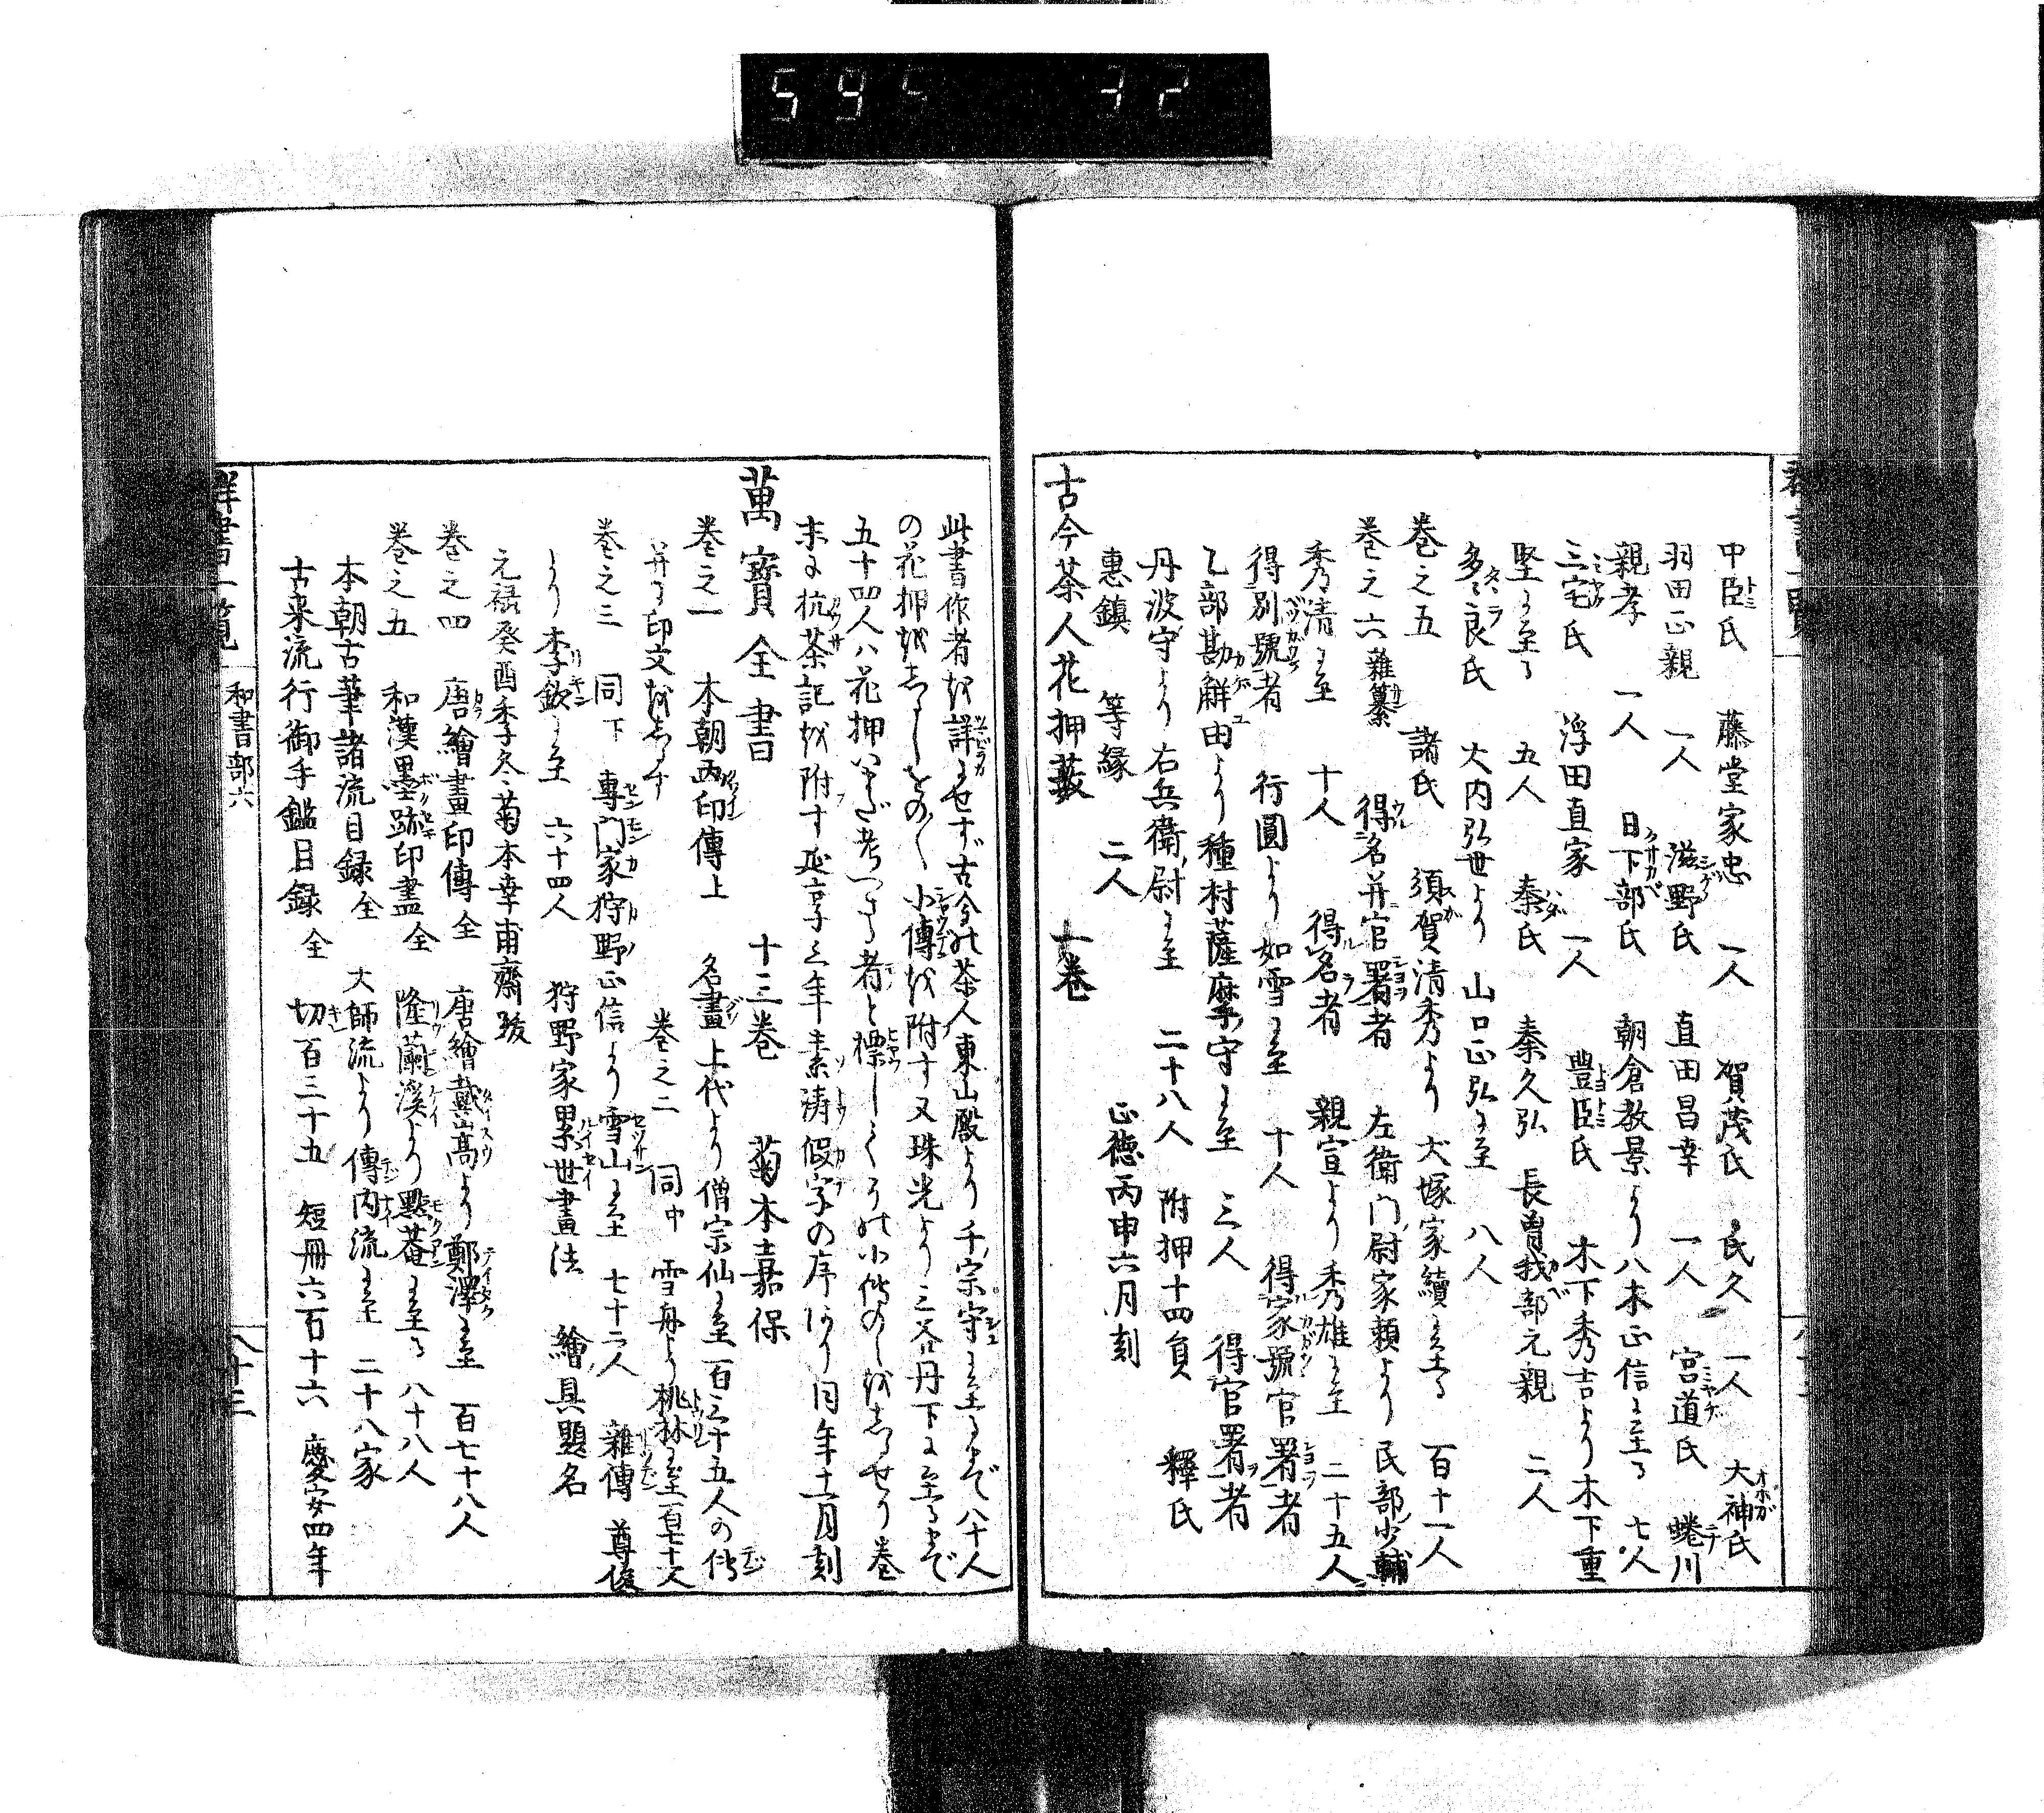 中臣氏　藤堂家忠　一人　賀茂氏　氏久　一人　大神氏
羽田正親　一人　滋野氏　直田昌幸　一人　宮道氏　蜷川
親孝　一人　日下部氏　朝倉教景より八木正信に至る　七人
三宅氏　浮田直家　一人　豊臣氏　木下秀吉より木下重
堅に至る　五人　秦氏　秦久弘　長曽我部元親　二人
多々良氏　大内弘世より　山口正弘に至　八人
巻之五　諸氏　須賀清秀より　犬塚家續に至る　百十一人
巻之六　雜纂　得名并官署者　左衛門尉家頼より　民部少輔
秀清に至　十人　得名者　親宣より　秀雄に至　二十五人
得別號者　行圓より　如雪に至　十人　得家號官署者
乙部勘解由より　種村薩摩守に至　三人　得官署者
丹波守より　右兵衛尉に至　二十八人　附押十四員　釋氏
惠鎮　等縁　二人　正徳丙申六月刻
古今茶人花押藪　一巻
此書作者を詳にせず古今の茶人東山殿より　千宗守に至るまで八十人
の花押をしるしをの〳〵小傳を附す又珠光より三谷丹下に至るまで
五十四人ハ花押いまだ考へざる者と標しくりの小傳のミをしるせり巻
末に抗茶記を附す延享三年素濤假字の序あり同年十一月刻
萬寶全書　十三巻　菊本嘉保
巻之一　本朝画印傳上　名畫上代より僧宗仙に至百三十五人の傳
并に印文をしるす　巻之二　同中　雪舟より桃林に至百七十人
巻之三　同下　專門家狩野正信より雪山に至　七十二人　雜傳　尊俊
より李欽に至　六十四人　狩野家累世畫法　繪具題名
元禄癸酉季冬菊本幸甫齋跋
巻之四　唐繪畫印傳全　唐繪戴嵩より鄭澤に至　百七十八人
巻之五　和漢墨跡印盡全　隆蘭溪より黙菴に至る　八十八人
本朝古筆諸流目録全　大師流より傳内流に至　二十八家
古来流行御手鑑目録全　切百三十九　短冊六百十六　慶安四年
群書一覧　和書部六　八十三